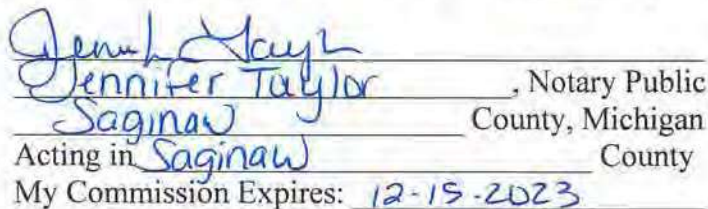 Jennifer Taylor, Notary Public
Saginaw County, Michigan
Acting in Saginaw County
My Commission Expires: 12-15-2023